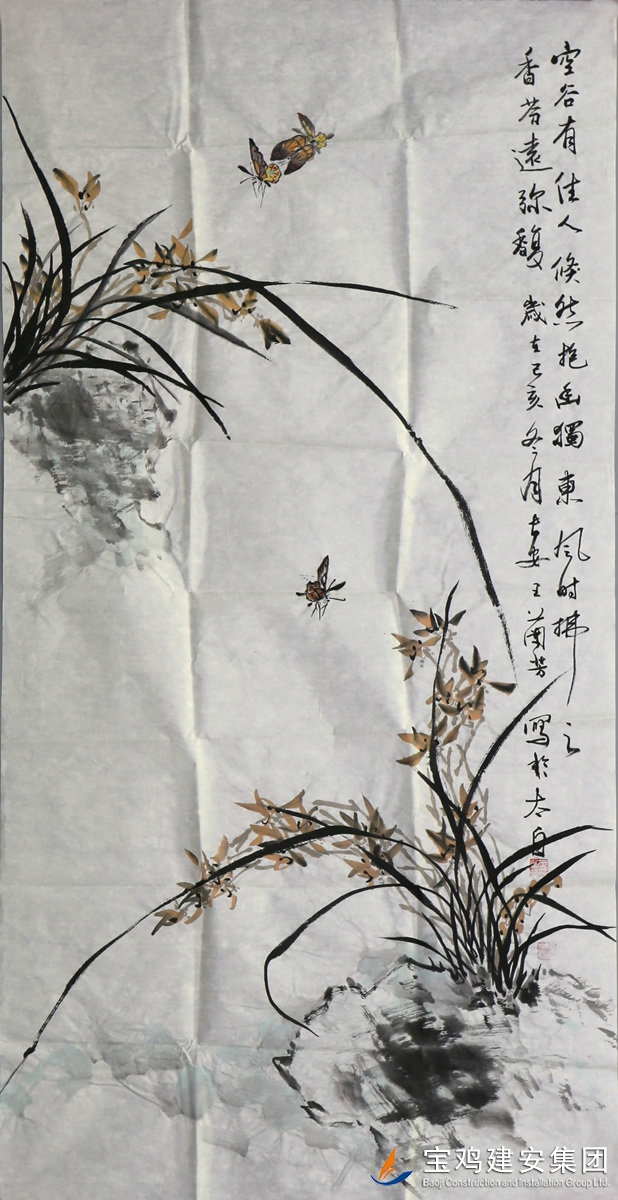 空谷有佳人倏然抱幽獨東风时拂之
香芬遠弥馥 歲在己亥冬月去安王蘭芳寫於太白
宝鸡建安集团
Baoji Construction and Installation Group Ltd.